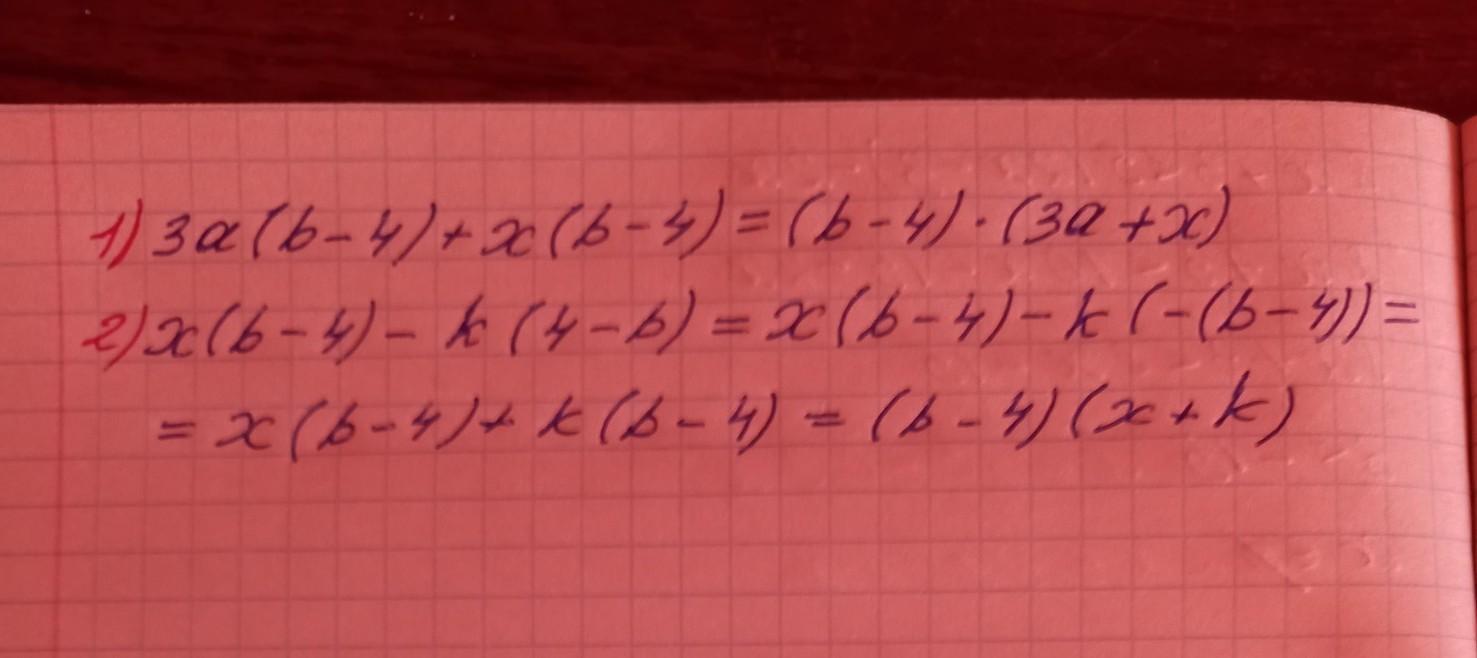 1) 3a(b-4)+x(b-4)=(b-4)·(3a+x)
2) x(b-4)-k(4-b)=x(b-4)-k(-(b-4))=
=x(b-4)+k(b-4)=(b-4)(x+k)